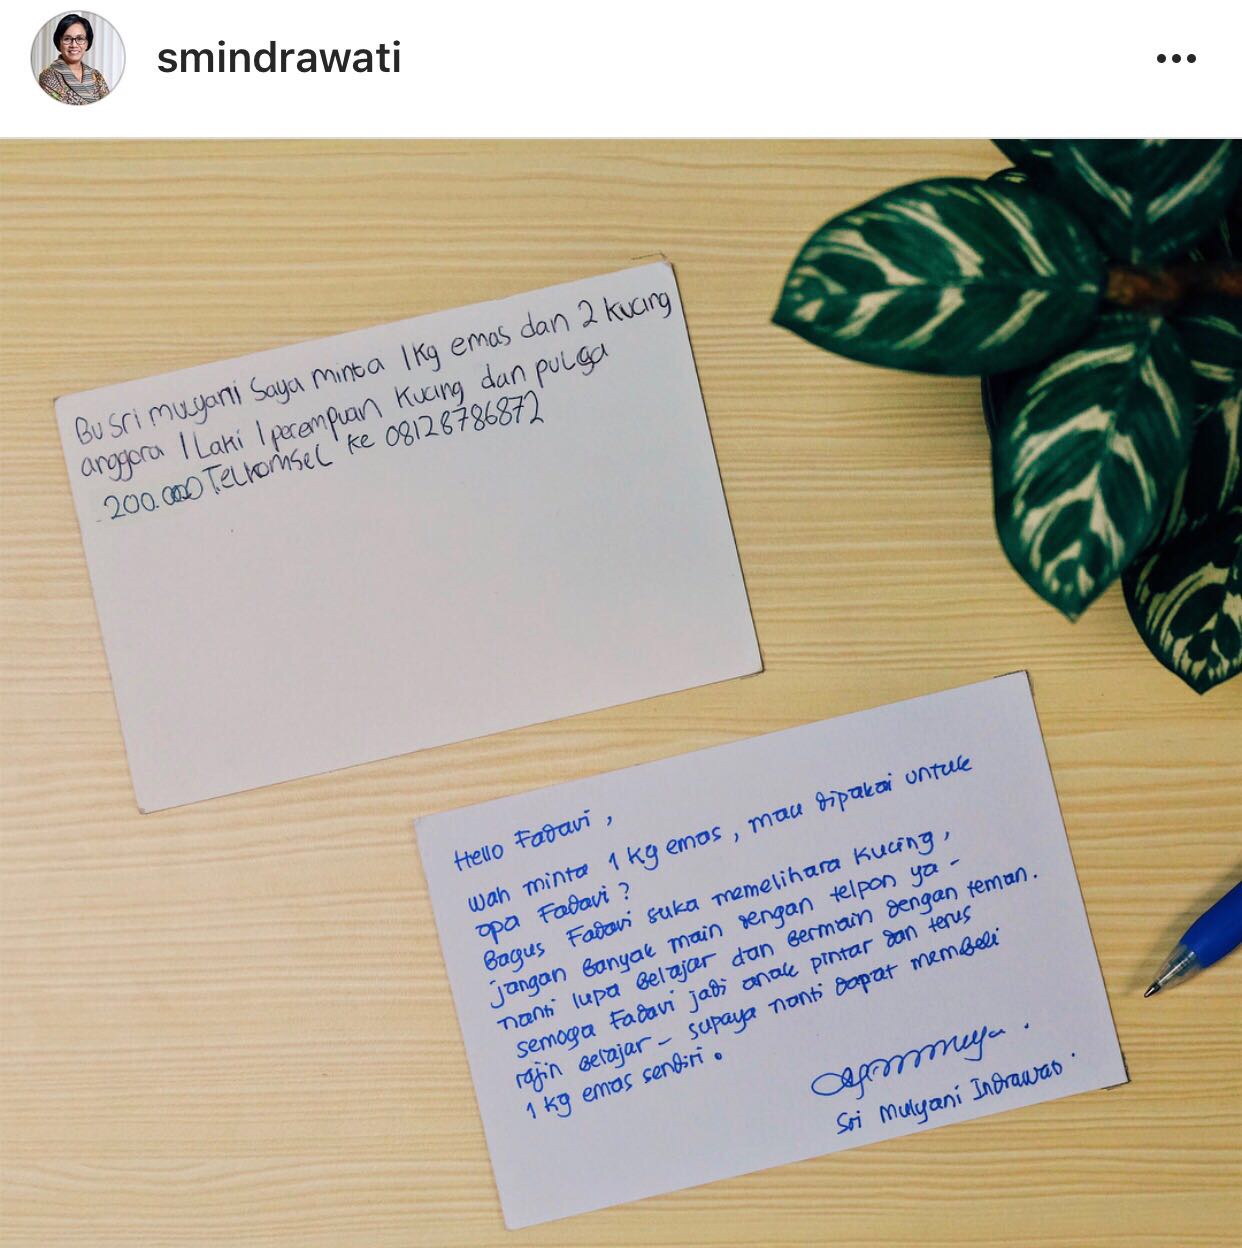 smindrawati
Bu Sri mulyani saya minta 1 kg emas dan 2 kucing
anggora 1 Laki 1 perempuan kucing dan pulsa
200.000 Telkomsel ke 08128786872
Hello Fadavi,
wah minta 1 kg emas, mau dipakai untuk
apa Fadavi?
Bagus Fadavi suka memelihara kucing,
jangan banyak main dengan telpon ya -
nanti lupa belajar dan bermain dengan teman.
semoga Fadavi jadi anak pintar dan terus
rajin belajar - supaya nanti dapat membeli
1 kg emas sendiri.
Sri Mulyani Indrawati.